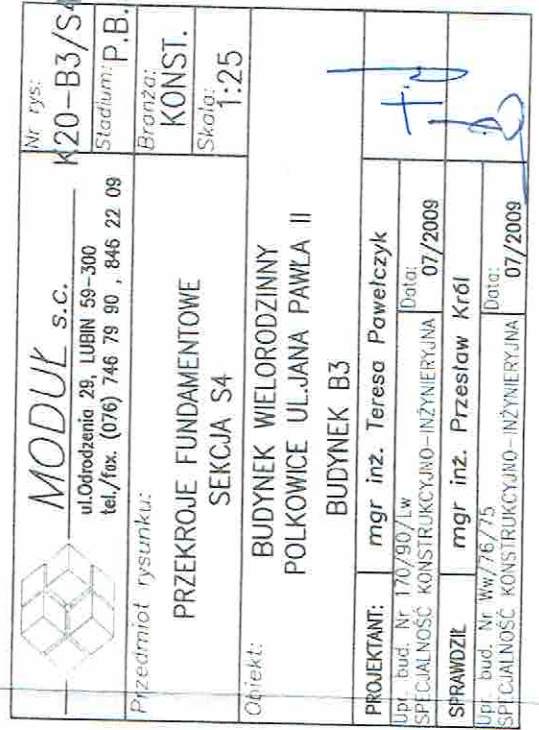 MODUŁ s.c.
ul.Odrodzenia 29, LUBIN 59-300
tel./fax. (076) 746 79 90 , 846 22 09
Nr rys:
K20-B3/S4
Stadium: P.B.
Przedmiot rysunku:
PRZEKROJE FUNDAMENTOWE
SEKCJA S4
Branża:
KONST.
Skala:
1:25
Obiekt:
BUDYNEK WIELORODZINNY
POLKOWICE UL.JANA PAWŁA II
BUDYNEK B3
PROJEKTANT: mgr inż. Teresa Pawełczyk
Upr. bud. Nr 170/90/Lw
SPECJALNOŚĆ KONSTRUKCYJNO-INŻYNIERYJNA
Data:
07/2009
SPRAWDZIŁ mgr inż. Przesław Król
Upr. bud. Nr Ww/76/75
SPECJALNOŚĆ KONSTRUKCYJNO-INŻYNIERYJNA
Data:
07/2009